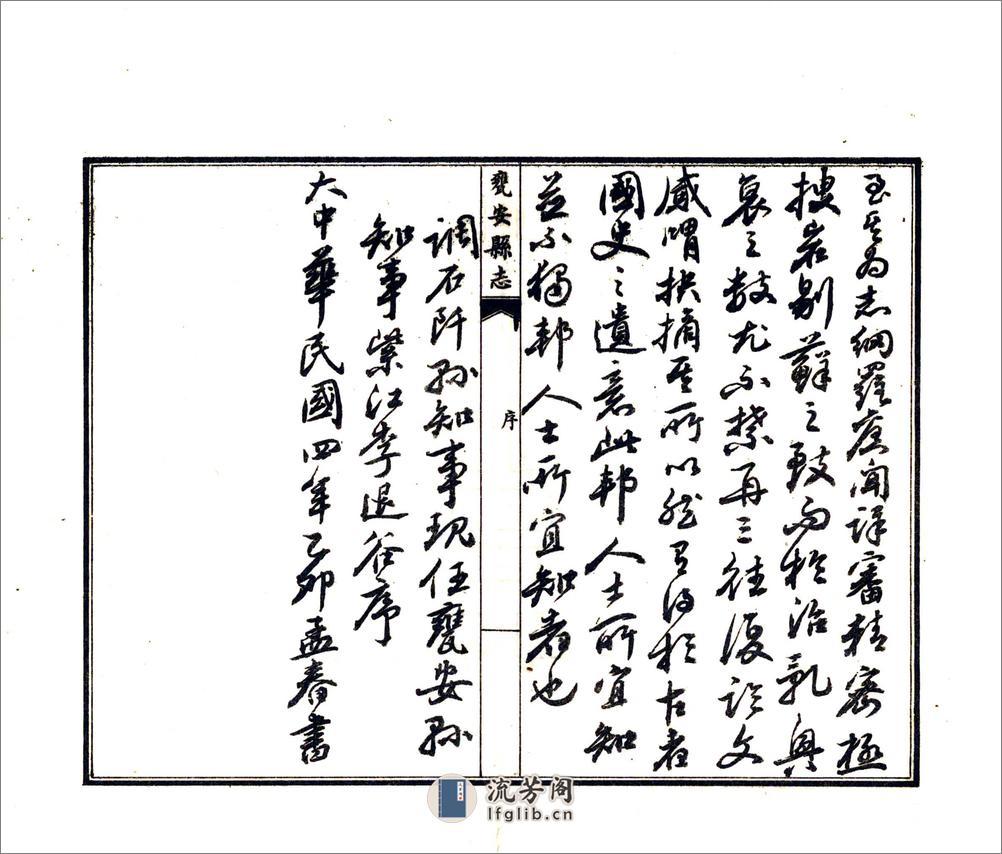 至其為志網羅舊聞詳審精密極
搜岩剔蘚之致而於治亂興
衰之數尤不禁再三往復論文
咸謂抉摘其所以然有得於古者
國史之遺意此邦人士所宜知
並不獨邦人士所宜知者也
甕安縣志
序
調石阡縣知事現任甕安縣
知事紫江李退谷序
大中華民國四年乙卯孟春書
流芳阁
lfglib.cn